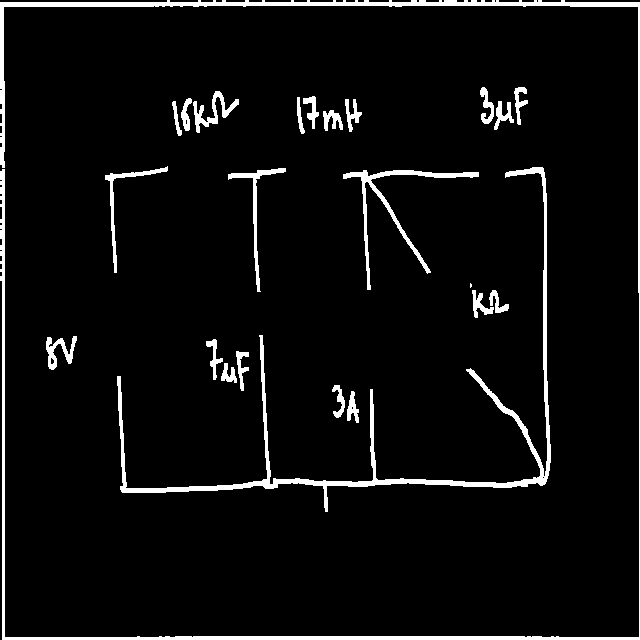 16kΩ
17mH
3μF
kΩ
8V
7μF
3A